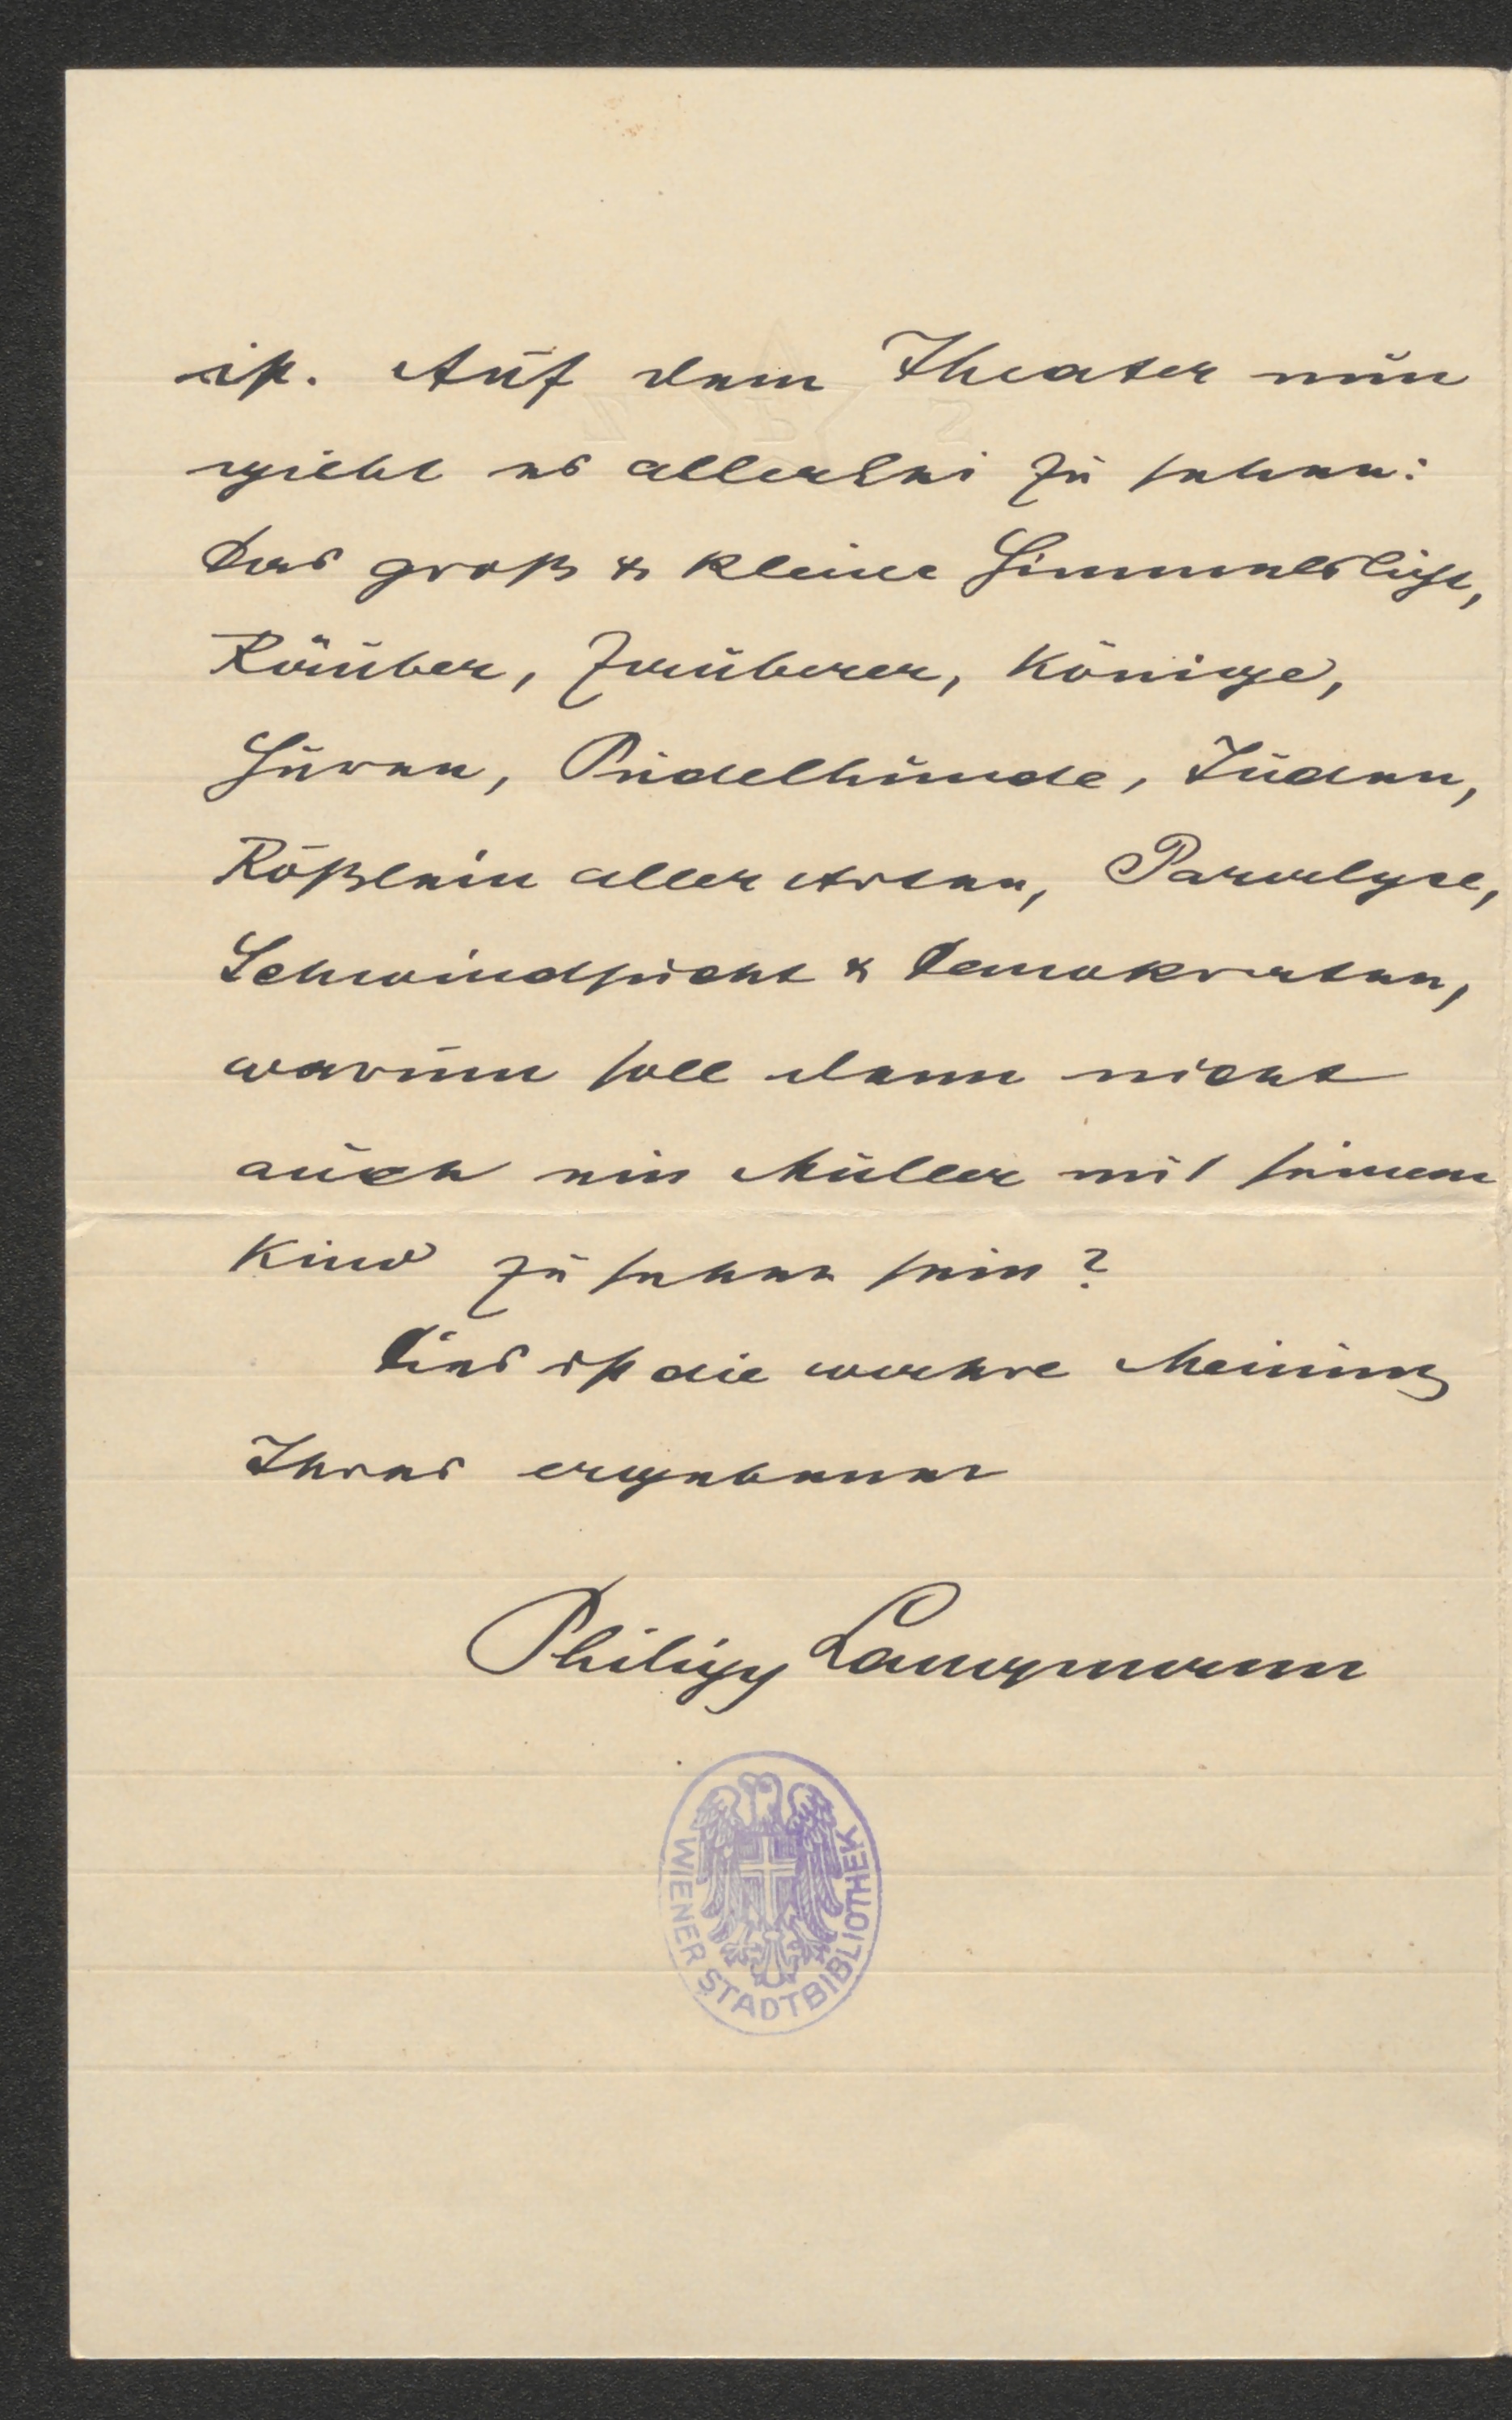 ist. Auf dem Theater nun
giebt es allerlei zu sehen:
Das groß & kleine Himmelslicht,
Räuber, Zauberer, Könige,
Huren, Pudelhunde, Juden,
Rößlein aller Arten, Paralyse,
Schwindsucht & Demokraten,
warum soll denn nicht
auch ein Müller mit seinem
Kind zu sehen sein?
Dies ist die wahre Meinung
Ihres ergebenen
Philipp Langmann
WIENER STADTBIBLIOTHEK